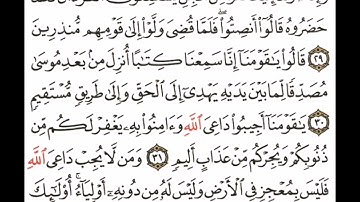 حَضَرُوهُ قَالُوٓا۟ أَنصِتُوا۟ ۖ فَلَمَّا قُضِىَ وَلَّوْا۟ إِلَىٰ قَوْمِهِم مُّنذِرِينَ
٢٩ قَالُوا۟ يَٰقَوْمَنَآ إِنَّا سَمِعْنَا كِتَٰبًا أُنزِلَ مِنۢ بَعْدِ مُوسَىٰ
مُصَدِّقًا لِّمَا بَيْنَ يَدَيْهِ يَهْدِىٓ إِلَى ٱلْحَقِّ وَإِلَىٰ طَرِيقٍ مُّسْتَقِيمٍ
٣٠ يَٰقَوْمَنَآ أَجِيبُوا۟ دَاعِىَ ٱللَّهِ وَءَامِنُوا۟ بِهِۦ يَغْفِرْ لَكُم مِّن
ذُنُوبِكُمْ وَيُجِرْكُم مِّنْ عَذَابٍ أَلِيمٍ ٣١ وَمَن لَّا يُجِبْ دَاعِىَ ٱللَّهِ
فَلَيْسَ بِمُعْجِزٍ فِى ٱلْأَرْضِ وَلَيْسَ لَهُۥ مِن دُونِهِۦٓ أَوْلِيَآءُ ۚ أُو۟لَٰٓئِكَ